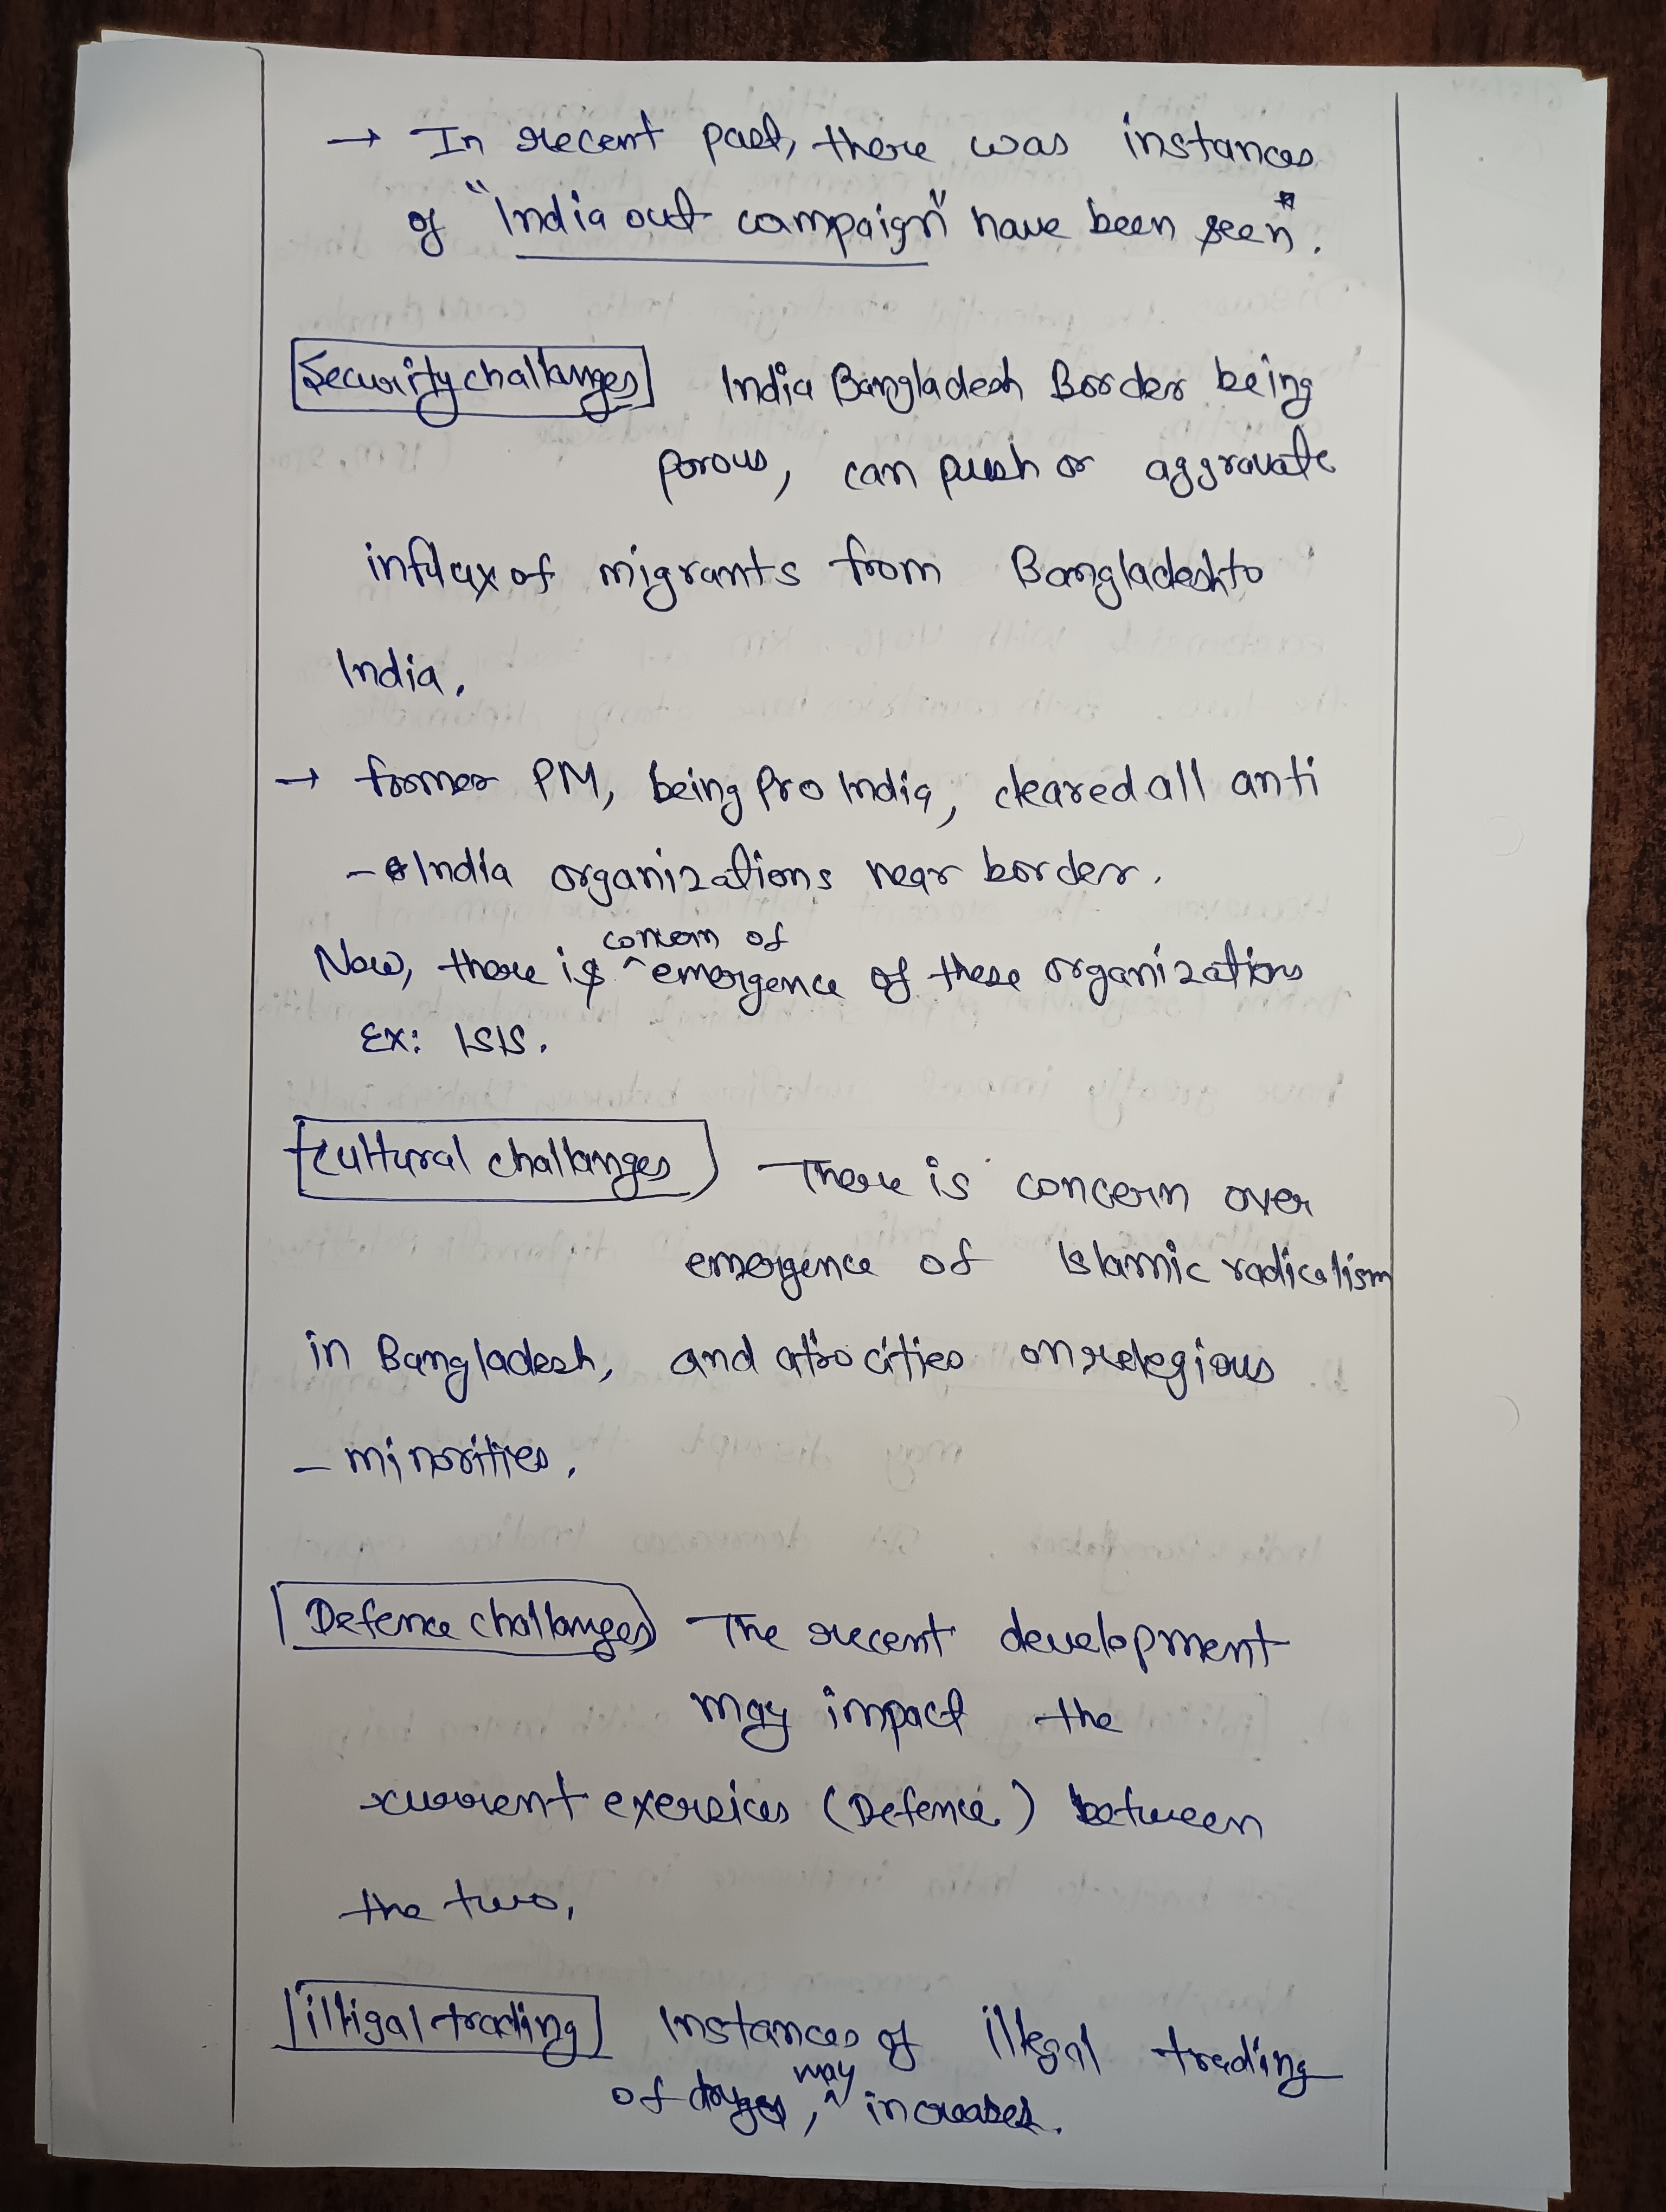 → In recent past, there was instances
of "India out campaign" have been seen".
Security challanges India Bangladesh Border being
porous, can push or aggravate
influx of migrants from Bangladesh to
India.
→ former PM, being Pro India, cleared all anti
- India organizations near border.
Now, there is concern of emergence of these organizations
Ex: ISIS.
Cultural challanges There is concern over
emergence of Islamic radicalism
in Bangladesh, and atrocities on relegious
- minorities.
Defence challanges The recent development
may impact the
current exersices (Defence) between
the two,
illigal trading Instances of illegal trading
of druges, may increases.